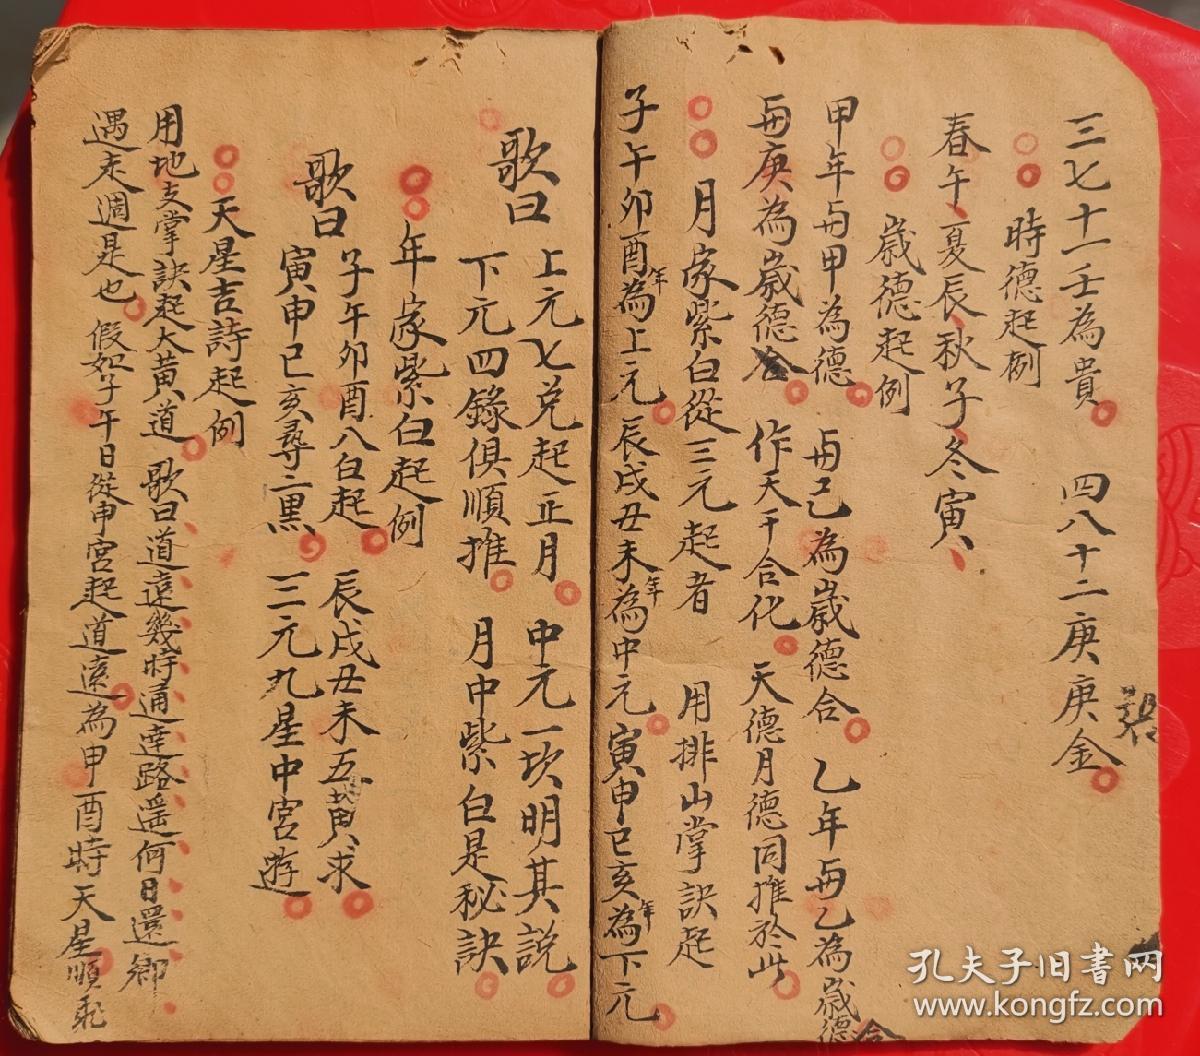 三七十一壬為貴 四八十二庚庚金
時德起例
春午夏辰秋子冬寅
歲德起例
甲年与甲為德 与己為歲德合 乙年与乙為歲德合
与庚為歲德合 作天干合化 天德月德同推於此
月家紫白從三元起者 用排山掌訣起
子午卯酉年為上元 辰戌丑未年為中元 寅申巳亥年為下元
歌曰 上元七兑起正月 中元一坎明其說
下元四錄俱順推 月中紫白是秘訣
年家紫白起例
歌曰 子午卯酉八白起 辰戌丑未五黄求
寅申巳亥尋二黑 三元九星中宮遊
天星吉詩起例
用地支掌訣起大黄道 歌曰道遠幾時通達路遥何日還鄉
遇走週是也 假如子午日從申宮起道遠為申酉時天星順
孔夫子旧書网
www.kongfz.com